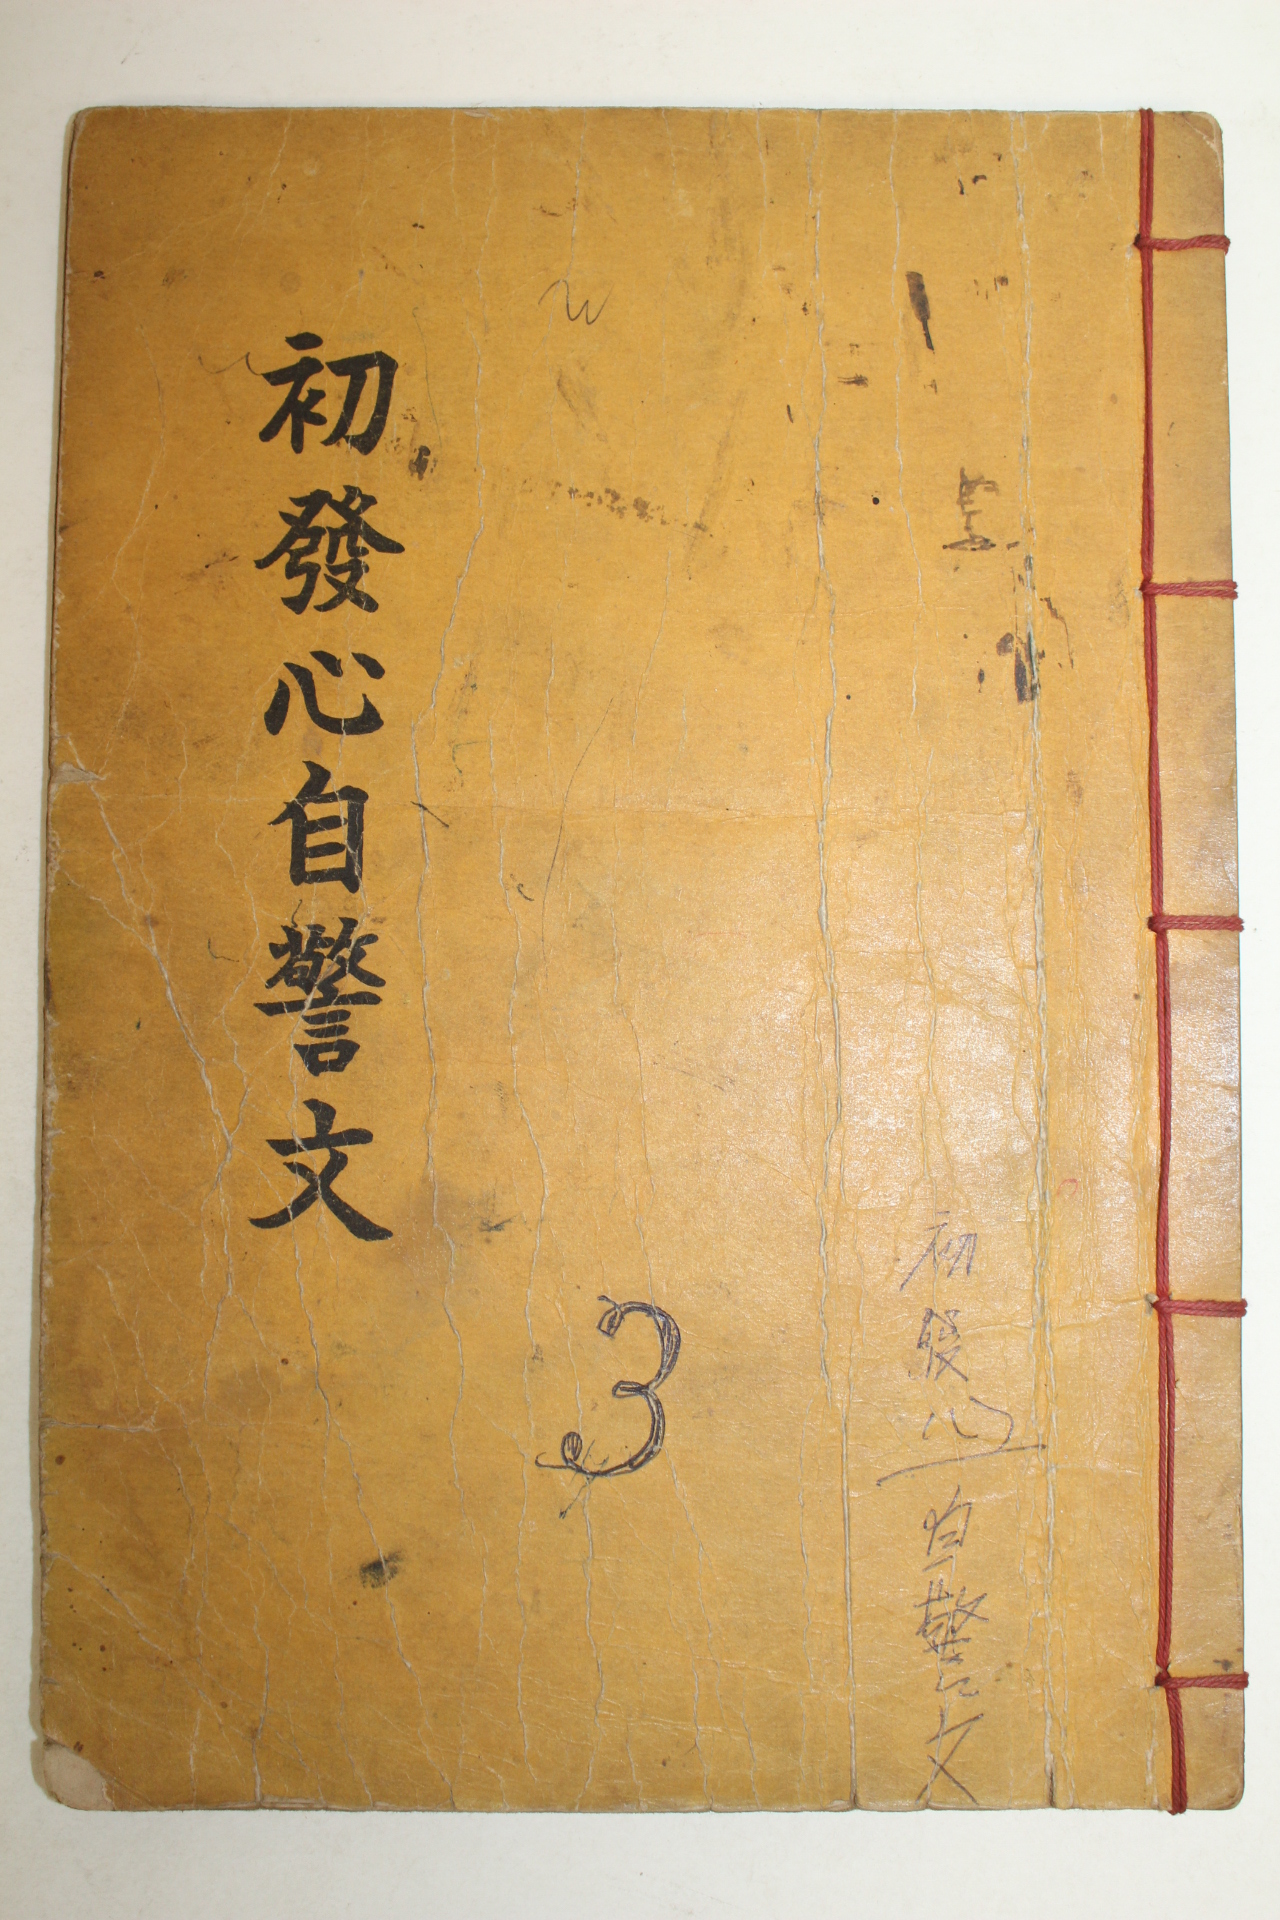 初發心自警文
3
初發心自警文